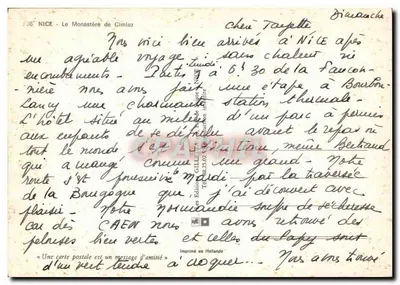 NICE - Le Monastère de Cimiez
Dimanche
chère Tarpette
Nous voici bien arrivés à NICE après
un agréable voyage - sans chaleur ni
encombrements - Partis à 6h30 de la
nière nous avons fait une étape à Bourbon-
Lancy une charmante station thermale -
L'hôtel situé au milieu d'un parc a permis
aux enfants de se détendre avant le repas où
tout le monde s'est même Bertrand
qui a mangé comme un grand - Notre
route s'est poursuivie Mardi par la traversée
de la Bourgogne que j'ai découvert avec
plaisir - Notre Normandie souffre de sécheresse
car dès CAEN nous avons retrouvé des
pelouses bien vertes et celles du Papy sont
"Une carte postale est un message d'amitié"
Imprimé en Hollande
d'un vert tendre à croquer... Nous avons tiré